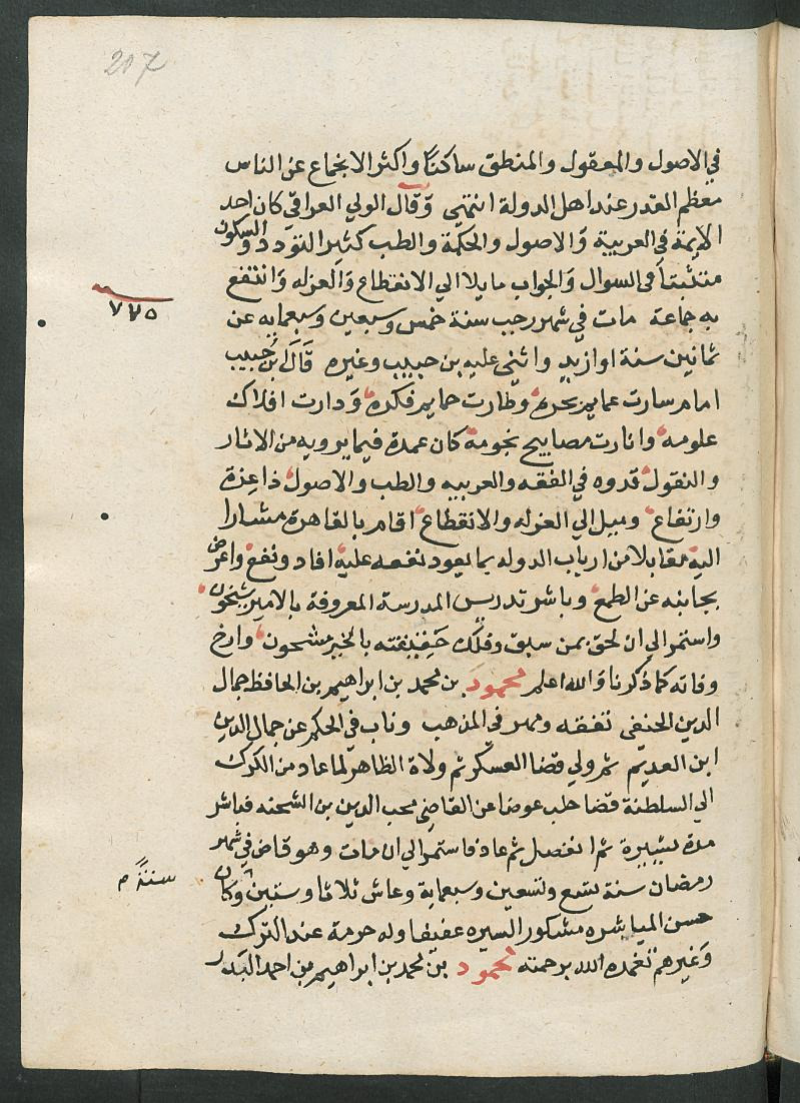 207
في الاصول والمعقول والمنطق ساكنا واكثر الانجماع عن الناس
معظم القدر عند اهل الدولة انتهي وقال الولي العراقي كان احد
الايمة في العربية والاصول والحكمة والطب كثير التودد والسكون
متثبتا في السوال والجواب مايلا الي الانقطاع والعزله وانتفع
به جماعة مات في شهر رجب سنة خمس وسبعين وسبعمايه عن
٧٧٥
ثمانين سنة او ازيد واثني عليه بن حبيب وغيره قال بن حبيب
امام سارت عمايم بحره وطارت حمايم فكره ودارت افلاك
علومه وانارت مصابيح نجومه كان عمدة فيما يرويه من الاثار
والنقول قدوه في الفقه والعربيه والطب والاصول ذا عزة
وارتفاع وميل الي العزله والانقطاع اقام بالقاهرة مشارا
اليه مقابلا من ارباب الدوله بما يعود نفعه عليه افاد ونفع واعرض
بجانبه عن الطمع وباشر تدريس المدرسة المعروفة بالامير شيخون
واستمر الي ان لحق بمن سبق وفلك حقيقته بالخير مشحون وارخ
وفاته كما ذكرنا والله اعلم محمود بن محمد بن ابراهيم بن الحافظ جمال
الدين الحنفي تفقه ومهر في المذهب وناب في الحكم عن جمال الدين
ابن العديم ثم ولي قضا العسكر ثم ولاة الظاهر لما عاد من الكرك
الي السلطنة قضا حلب عوضا عن القاضي محب الدين بن الشحنه فباشر
مدة يسيرة ثم انفصل ثم عاد فاستمر الي ان مات وهو قاض في شهر
رمضان سنة تسع وتسعين وسبعماية وعاش ثلاثا وستين وكان
سنة م
حسن المباشره مشكور السيره عفيفا وله حرمة عند الترك
وغيرهم تغمده الله برحمته محمود بن محمد بن ابراهيم بن احمد البدر